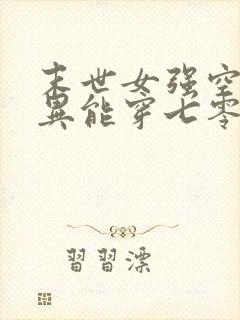 末世女强空
異能穿七零
習習漂